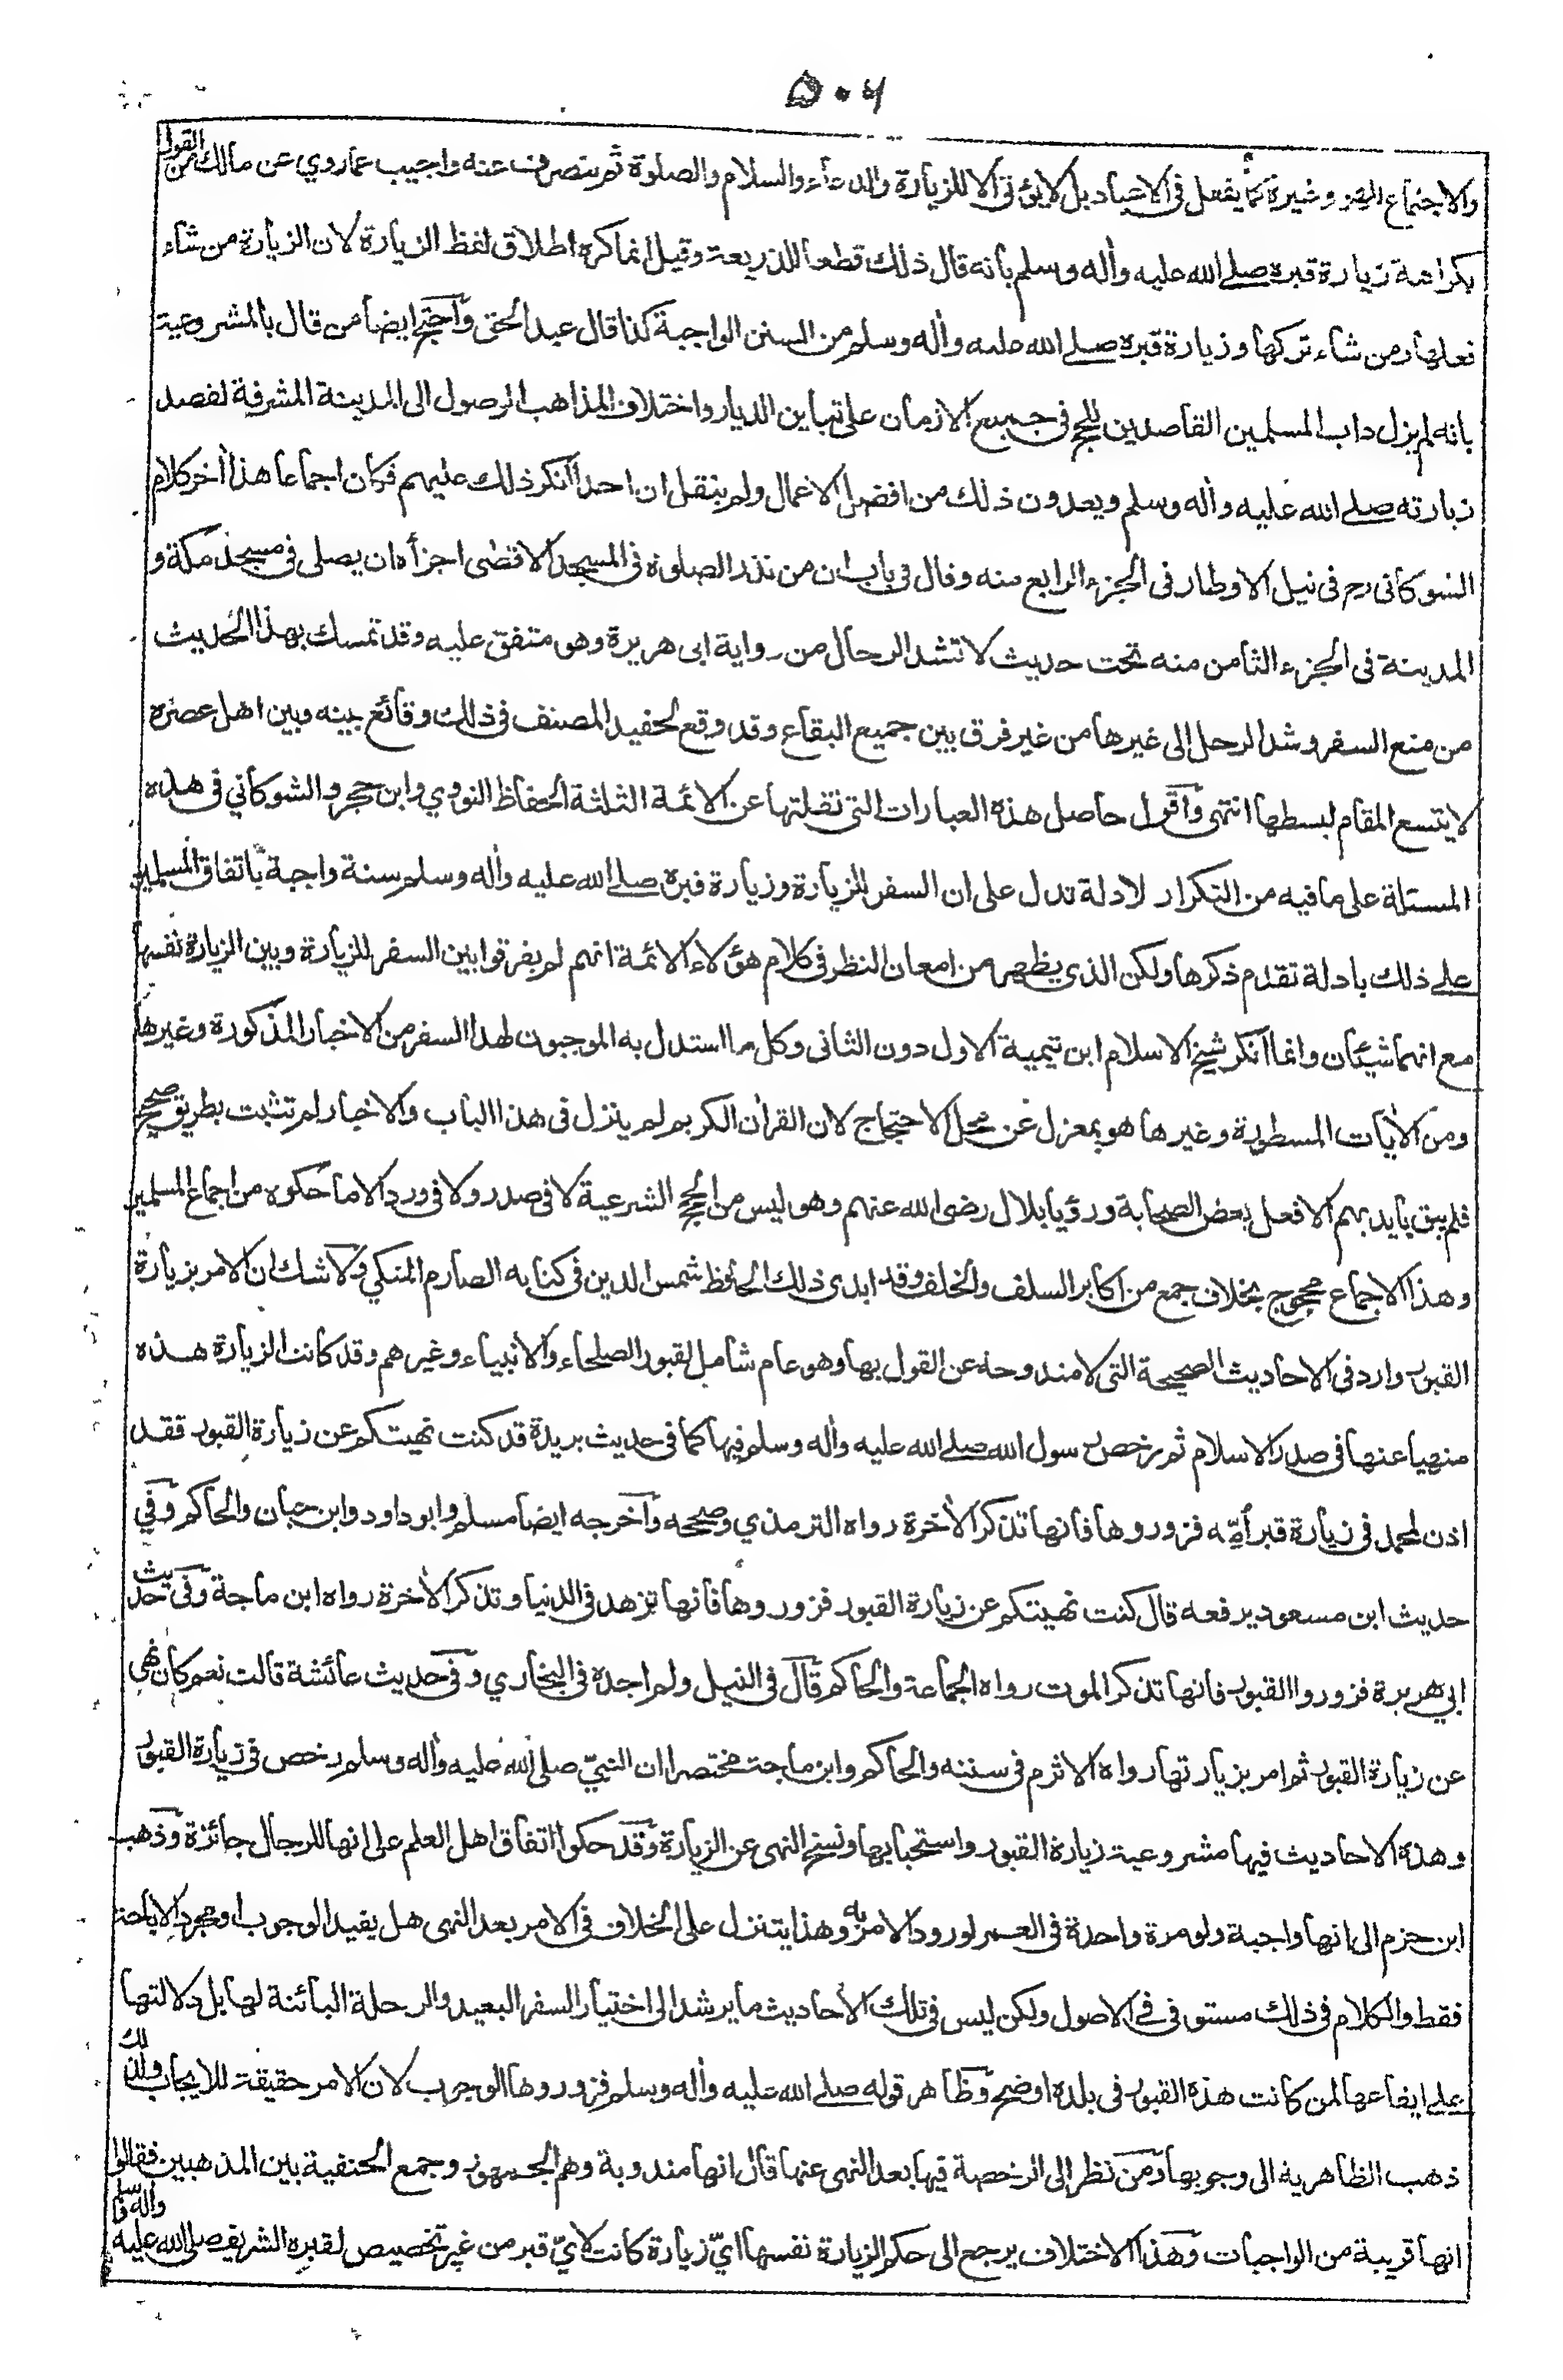 ٥٠٦
والاجتماع للهو وغيره كما يفعل فى الاعياد بل لا يؤتى الا للزيارة والدعاء والسلام والصلوة ثم ينصرف عنه واجيب عما روي عن مالك من القول
بكراهة زيارة قبره صلى الله عليه وأله وسلم بانه قال ذلك قطعا للذريعة وقيل انما كره اطلاق لفظ الزيارة لان الزيارة من شاء
فعلها ومن شاء تركها وزيارة قبره صلى الله عليه وأله وسلم من السنن الواجبة كذا قال عبد الحق واحتج ايضا من قال بالمشروعية
بانه لم يزل داب المسلمين القاصدين للحج فى جميع الازمان على تباين الديار واختلاف المذاهب الوصول الى المدينة المشرفة لقصد
زيارته صلى الله عليه وأله وسلم ويعدون ذلك من افضل الاعمال ولم ينقل ان احدا انكر ذلك عليهم فكان اجماعا هذا أخر كلام
الشوكانى رح فى نيل الاوطار فى الجزء الرابع منه وقال فى باب ان من نذر الصلوة فى المسجد الاقصى اجزأه ان يصلى فى مسجد مكة و
المدينة فى الجزء الثامن منه تحت حديث لا تشد الرحال من رواية ابى هريرة وهو متفق عليه وقد تمسك بهذا الحديث
من منع السفر وشد الرحل الى غيرها من غير فرق بين جميع البقاع وقد وقع لحفيد المصنف فى ذلك وقائع بينه وبين اهل عصره
لا يتسع المقام لبسطها انتهى واقول حاصل هذه العبارات التى نقلتها عن الائمة الثلثة الحفاظ النووي وابن حجر والشوكاني فى هذه
المسئلة على ما فيه من التكرار لادلة تدل على ان السفر للزيارة وزيارة قبره صلى الله عليه وأله وسلم سنة واجبة باتفاق المسلمين
على ذلك بادلة تقدم ذكرها ولكن الذى يظهر من امعان النظر فى كلام هؤلاء الائمة انهم لم يفرقوا بين السفر للزيارة وبين الزيارة نفسها
مع انهما شيئان وانما انكر شيخ الاسلام ابن تيمية الاول دون الثانى وكل ما استدل به الموجبون لهذا السفر من الاخبار المذكورة وغيرها
ومن الأيات المسطورة وغيرها هو بمعزل عن محل الاحتجاج لان القرأن الكريم لم ينزل فى هذا الباب والاخبار لم تثبت بطريق صحيح
فلم يبق بايديهم الا فعل بعض الصحابة ورؤيا بلال رضى الله عنهم وهو ليس من الحجج الشرعية لا فى صدر ولا فى ورد الا ما حكوه من اجماع المسلمين
وهذا الاجماع محجوج بخلاف جمع من اكابر السلف والخلف وقد ابدى ذلك الحافظ شمس الدين فى كتابه الصارم المنكي ولا شك ان الامر بزيارة
القبور وارد فى الاحاديث الصحيحة التى لا مندوحة عن القول بها وهو عام شامل لقبور الصلحاء والانبياء وغيرهم وقد كانت الزيارة هذه
منهيا عنها فى صدر الاسلام ثم رخص رسول الله صلى الله عليه وأله وسلم فيها كما فى حديث بريدة قد كنت نهيتكم عن زيارة القبور فقد
اذن لمحمد فى زيارة قبر أمه فزوروها فانها تذكر الأخرة رواه الترمذي وصححه واخرجه ايضا مسلم وابو داود وابن حبان والحاكم وفي
حديث ابن مسعود يرفعه قال كنت نهيتكم عن زيارة القبور فزوروها فانها تزهد فى الدنيا وتذكر الأخرة رواه ابن ماجة وفى حديث
ابي هريرة فزوروا القبور فانها تذكر الموت رواه الجماعة والحاكم قال فى النيل ولم اجده فى البخاري وفى حديث عائشة قالت نعم كان نهى
عن زيارة القبور ثم امر بزيارتها رواه الاثرم فى سننه والحاكم وابن ماجة مختصرا ان النبيّ صلى الله عليه وأله وسلم رخص فى زيارة القبور
وهذه الاحاديث فيها مشروعية زيارة القبور واستحبابها ونسخ النهى عن الزيارة وقد حكوا اتفاق اهل العلم على انها للرجال جائزة وذهب
ابن حزم الى انها واجبة ولو مرة واحدة فى العمر لورود الامر به وهذا يتنزل على الخلاف فى الامر بعد النهى هل يفيد الوجوب او مجرد الاباحة
فقط والكلام فى ذلك مستوفى فى الاصول ولكن ليس فى تلك الأحاديث ما يرشد الى اختيار السفر البعيد والرحلة البائنة لها بل دلالتها
على ايقاعها لمن كانت هذه القبور فى بلده اوضح وظاهر قوله صلى الله عليه وأله وسلم فزوروها الوجوب لان الامر حقيقة للايجاب ولذلك
ذهب الظاهرية الى وجوبها ومن نظر الى الرخصة فيها بعد النهى عنها قال انها مندوبة وهم الجمهور وجمع الحنفية بين المذهبين فقالوا
انها قريبة من الواجبات وهذا الاختلاف يرجع الى حكم الزيارة نفسها ايّ زيارة كانت لايّ قبر من غير تخصيص لقبره الشريف صلى الله عليه وأله وسلم